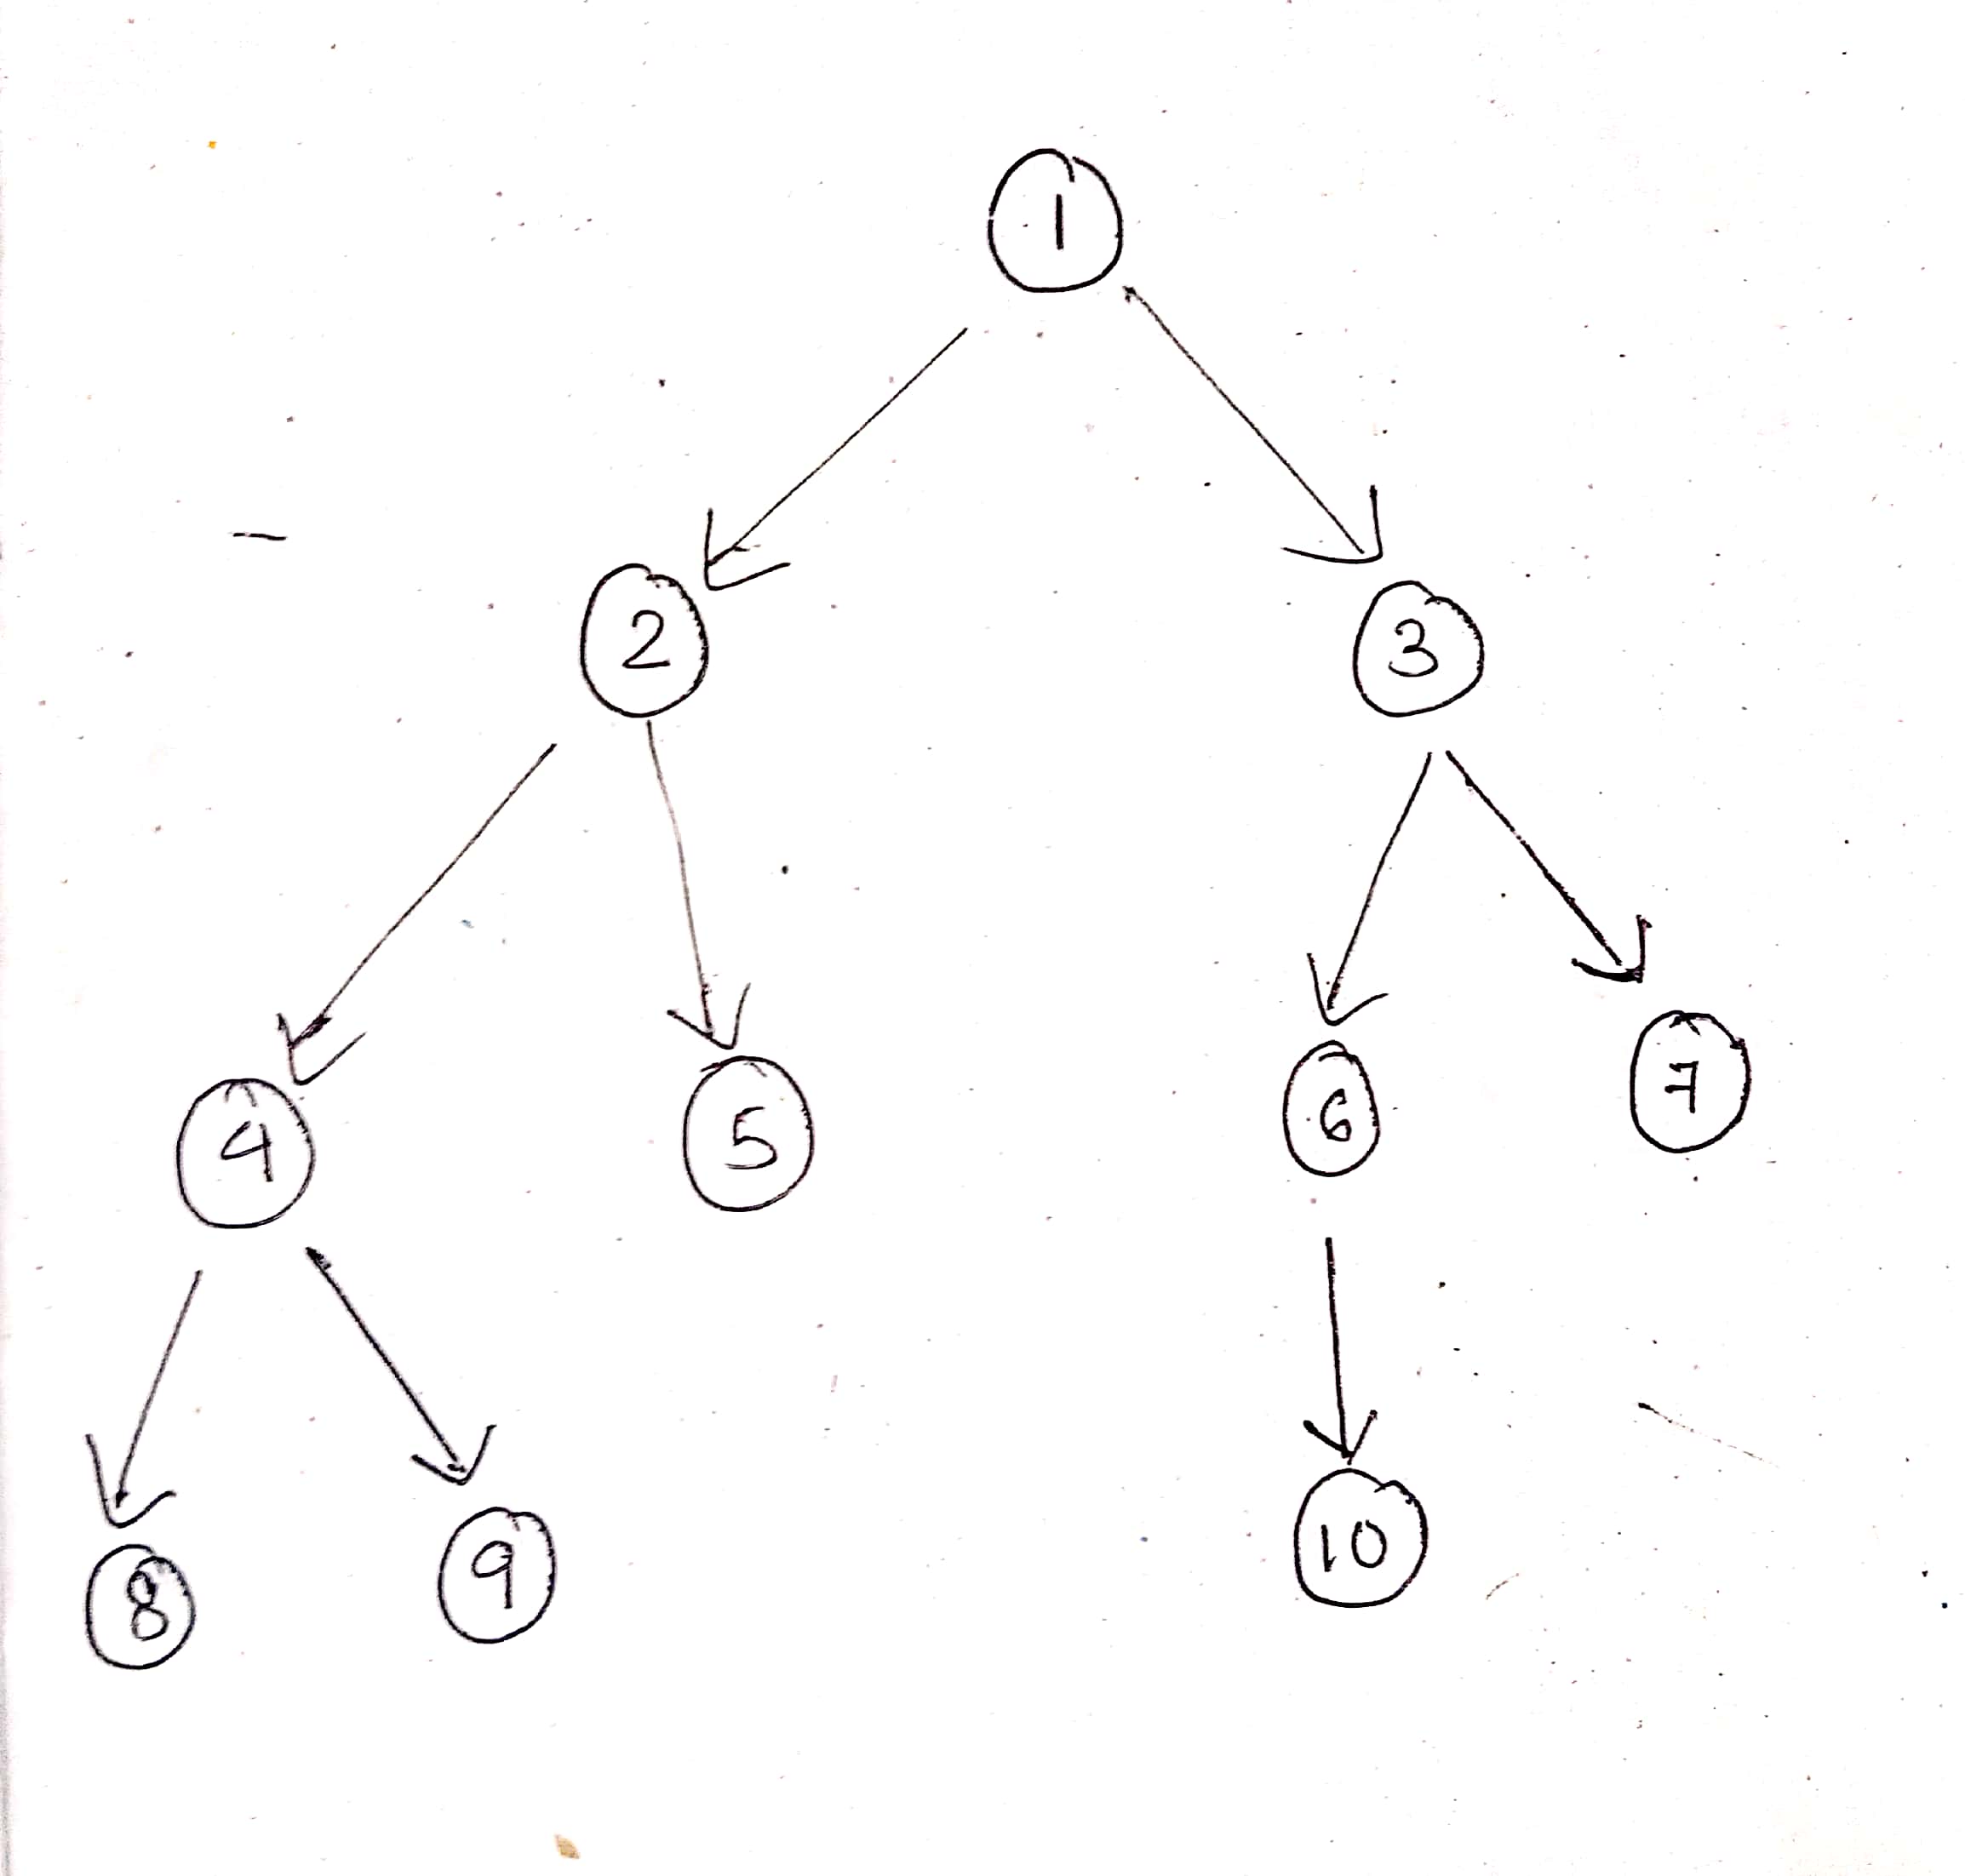 1
2 3
4 5 6 7
8 9 10